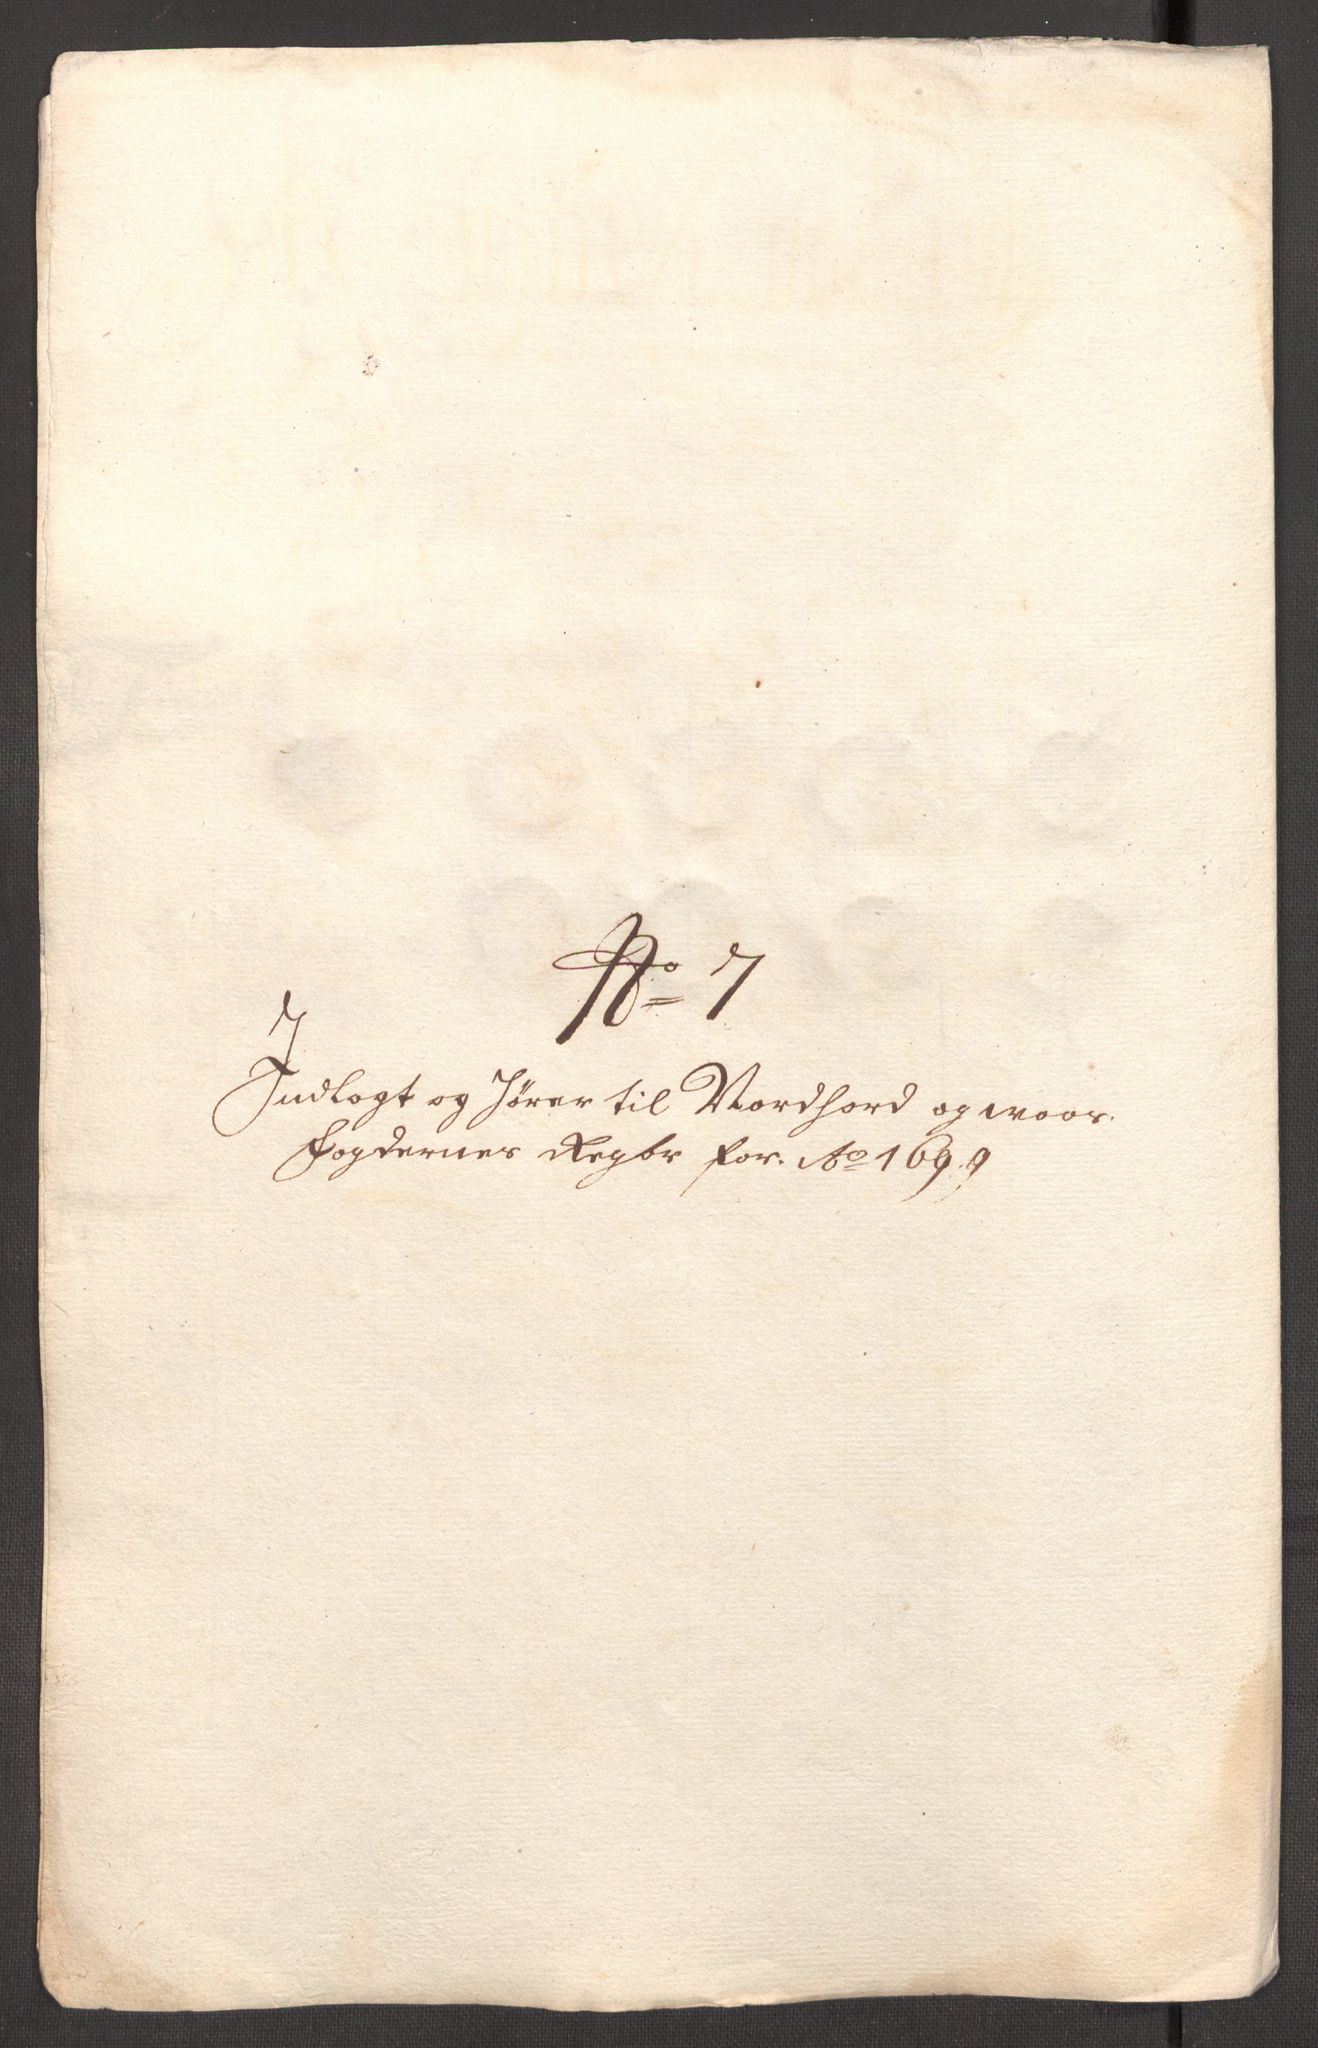 No 7
Indlagt og hører til Nordhord og woos.
fogderies Regbr for. Ao 1699